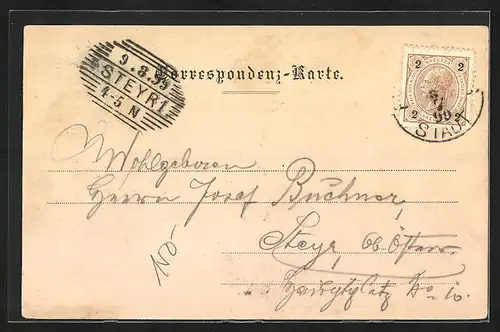 9.8.99
STEYR 1
4-5 N
Correspondenz-Karte.
2 2
2 2
99
STADT
Wohlgeboren
Herrn Josef Buchner,
Steyr, Ob. Österr.
Hauptplatz No 10.
150